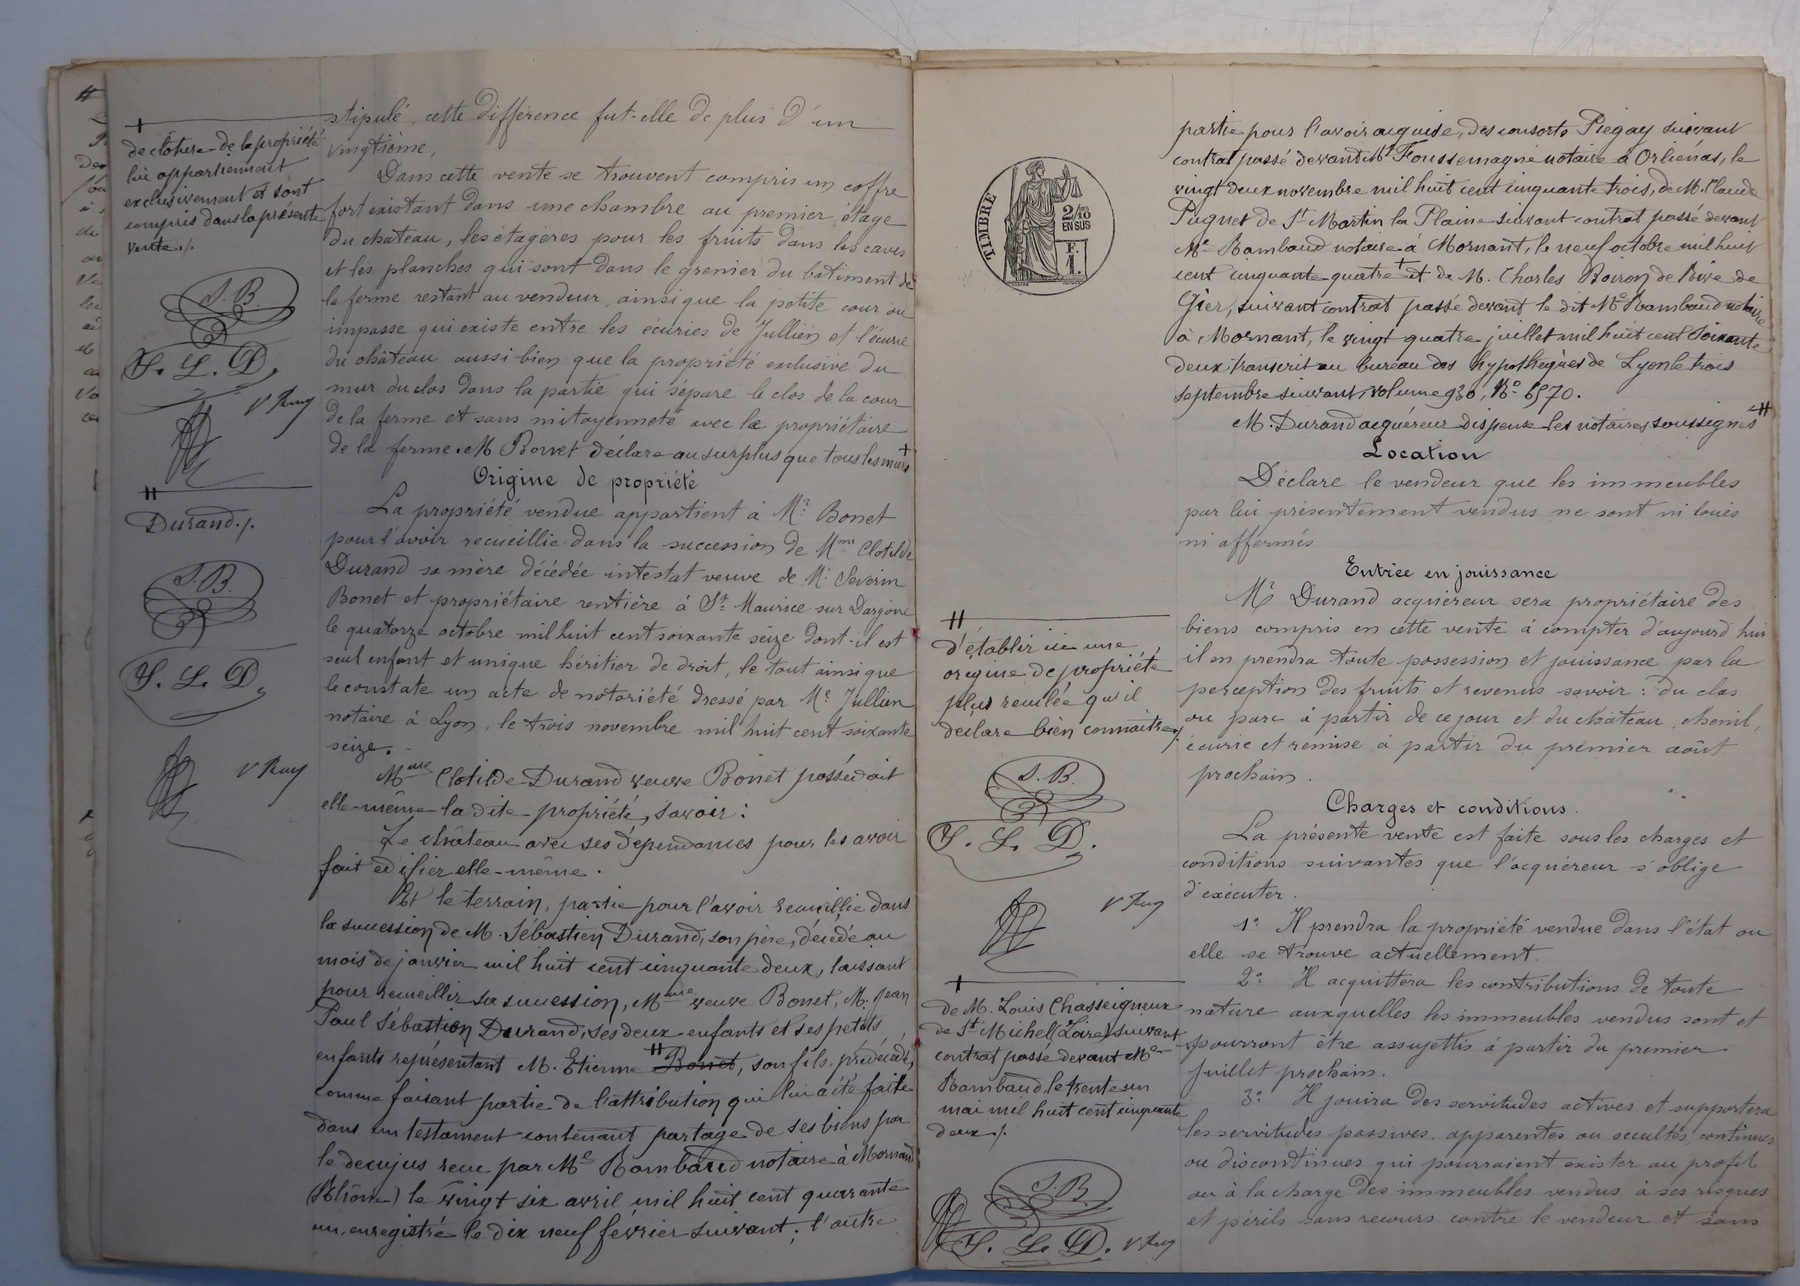 stipulé, cette différence fut-elle de plus d'un
vingtième,
Dans cette vente se trouvent compris un coffre
fort existant dans une chambre au premier étage
du château, les étagères pour les fruits dans les caves
et les planches qui sont dans le grenier du bâtiment de
la ferme restant au vendeur, ainsi que la petite cour ou
impasse qui existe entre les écuries de Jullien et l'écurie
du château aussi bien que la propriété exclusive du
mur du clos dans la partie qui sépare le clos de la cour
de la ferme et sans mitoyenneté avec le propriétaire
de la ferme. M Bonnet déclare au surplus que tous les murs +
Origine de propriété
La propriété vendue appartient à Mr Bonet
pour l'avoir recueillie dans la succession de Mme Clotilde
Durand sa mère décédée intestat veuve de Mr Severin
Bonet et propriétaire rentière à St Maurice sur Dargoire
le quatorze octobre mil huit cent soixante seize dont il est
seul enfant et unique héritier de droit, le tout ainsi que
le constate un acte de notoriété dressé par Me Jullien
notaire à Lyon, le trois novembre mil huit cent soixante
seize.
Mme Clotilde Durand veuve Bonet possédait
elle-même la dite propriété, savoir:
Le château avec ses dépendances pour les avoir
fait édifier elle-même.
Et le terrain, partie pour l'avoir recueillie dans
la succession de M. Sébastien Durand, son père, décédé au
mois de janvier mil huit cent cinquante deux, laissant
pour recueillir sa succession, Mme veuve Bonet, M. Jean
Paul Sébastien Durand, ses deux enfants et ses petits
enfants représentant M. Etienne # Bonet, son fils, prédécédé,
comme faisant partie de l'attribution qui lui a été faite
dans un testament contenant partage de ses biens par
le decujus reçu par Me Rambaud notaire à Mornant
(Rhône) le vingt six avril mil huit cent quarante
un, enregistré le dix neuf février suivant; l'autre
+
de clôture de la propriété
lui appartiennent
exclusivement et sont
compris dans la présente
vente./.
S. B
S. L. D.
V Ruy
#
Durand./.
S. B.
S. L. D.
V Ruy
TIMBRE
2/10
EN SUS
F.
1.
partie pour l'avoir acquise, des consorts Piegay suivant
contrat passé devant Me Foussemagne notaire à Orliénas, le
vingt deux novembre mil huit cent cinquante trois, de M. Claude
Puguet de St Martin la Plaine suivant contrat passé devant
Me Rambaud notaire à Mornant, le neuf octobre mil huit
cent cinquante quatre + et de M. Charles Boiron de Rive de
Gier, suivant contrat passé devant le dit Me Rambaud notaire
à Mornant, le vingt quatre juillet mil huit cent soixante
deux transcrit au bureau des hypothèques de Lyon le trois
septembre suivant, volume 930, No 6570.
M. Durand acquéreur dispense les notaires soussignés #
Location
Déclare le vendeur que les immeubles
par lui présentement vendus ne sont ni loués
ni affermés
Entrée en jouissance
Mr Durand acquéreur sera propriétaire des
biens compris en cette vente à compter d'aujourd'hui
il en prendra toute possession et jouissance par la
perception des fruits et revenus savoir: du clos
ou parc à partir de ce jour et du château, chenil,
écurie et remise à partir du premier août
prochain.
Charges et conditions.
La présente vente est faite sous les charges et
conditions suivantes que l'acquéreur s'oblige
d'exécuter.
1o Il prendra la propriété vendue dans l'état ou
elle se trouve actuellement.
2o Il acquittera les contributions de toute
nature auxquelles les immeubles vendus sont et
pourront être assujettis à partir du premier
Juillet prochain.
3o Il jouira des servitudes actives et supportera
les servitudes passives, apparentes ou occultes, continues
ou discontinues qui pourraient exister au profit
ou à la charge des immeubles vendus à ses risques
et périls sans recours contre le vendeur et sans
#
d'établir ici une
origine de propriété
plus reculée qu'il
déclare bien connaître./.
S. B.
S. L. D.
V Ruy
+
de M. Louis Chasseigneux
de St Michel (Loire) suivant
contrat passé devant Me
Rambaud le trente un
mai mil huit cent cinquante
deux./.
S. B.
S. L. D. V Ruy